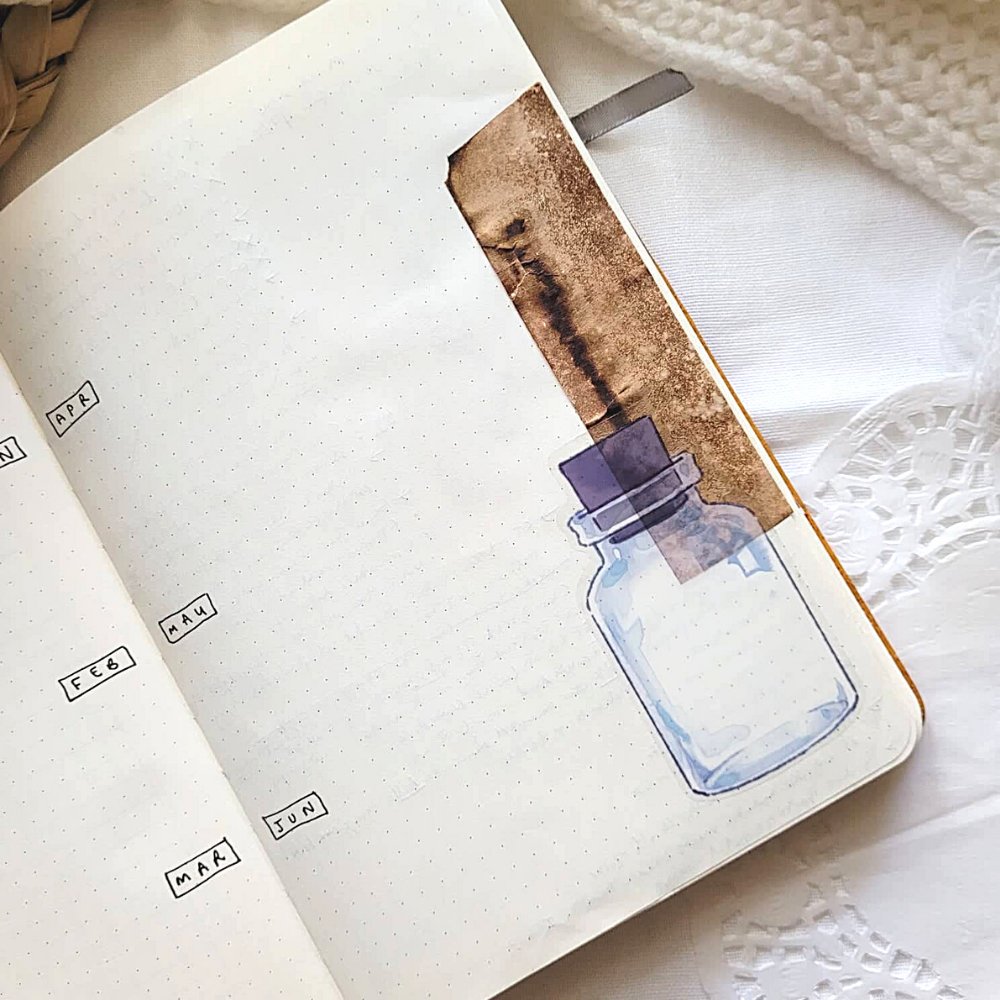 N
FEB
MAR
APR
MAY
JUN